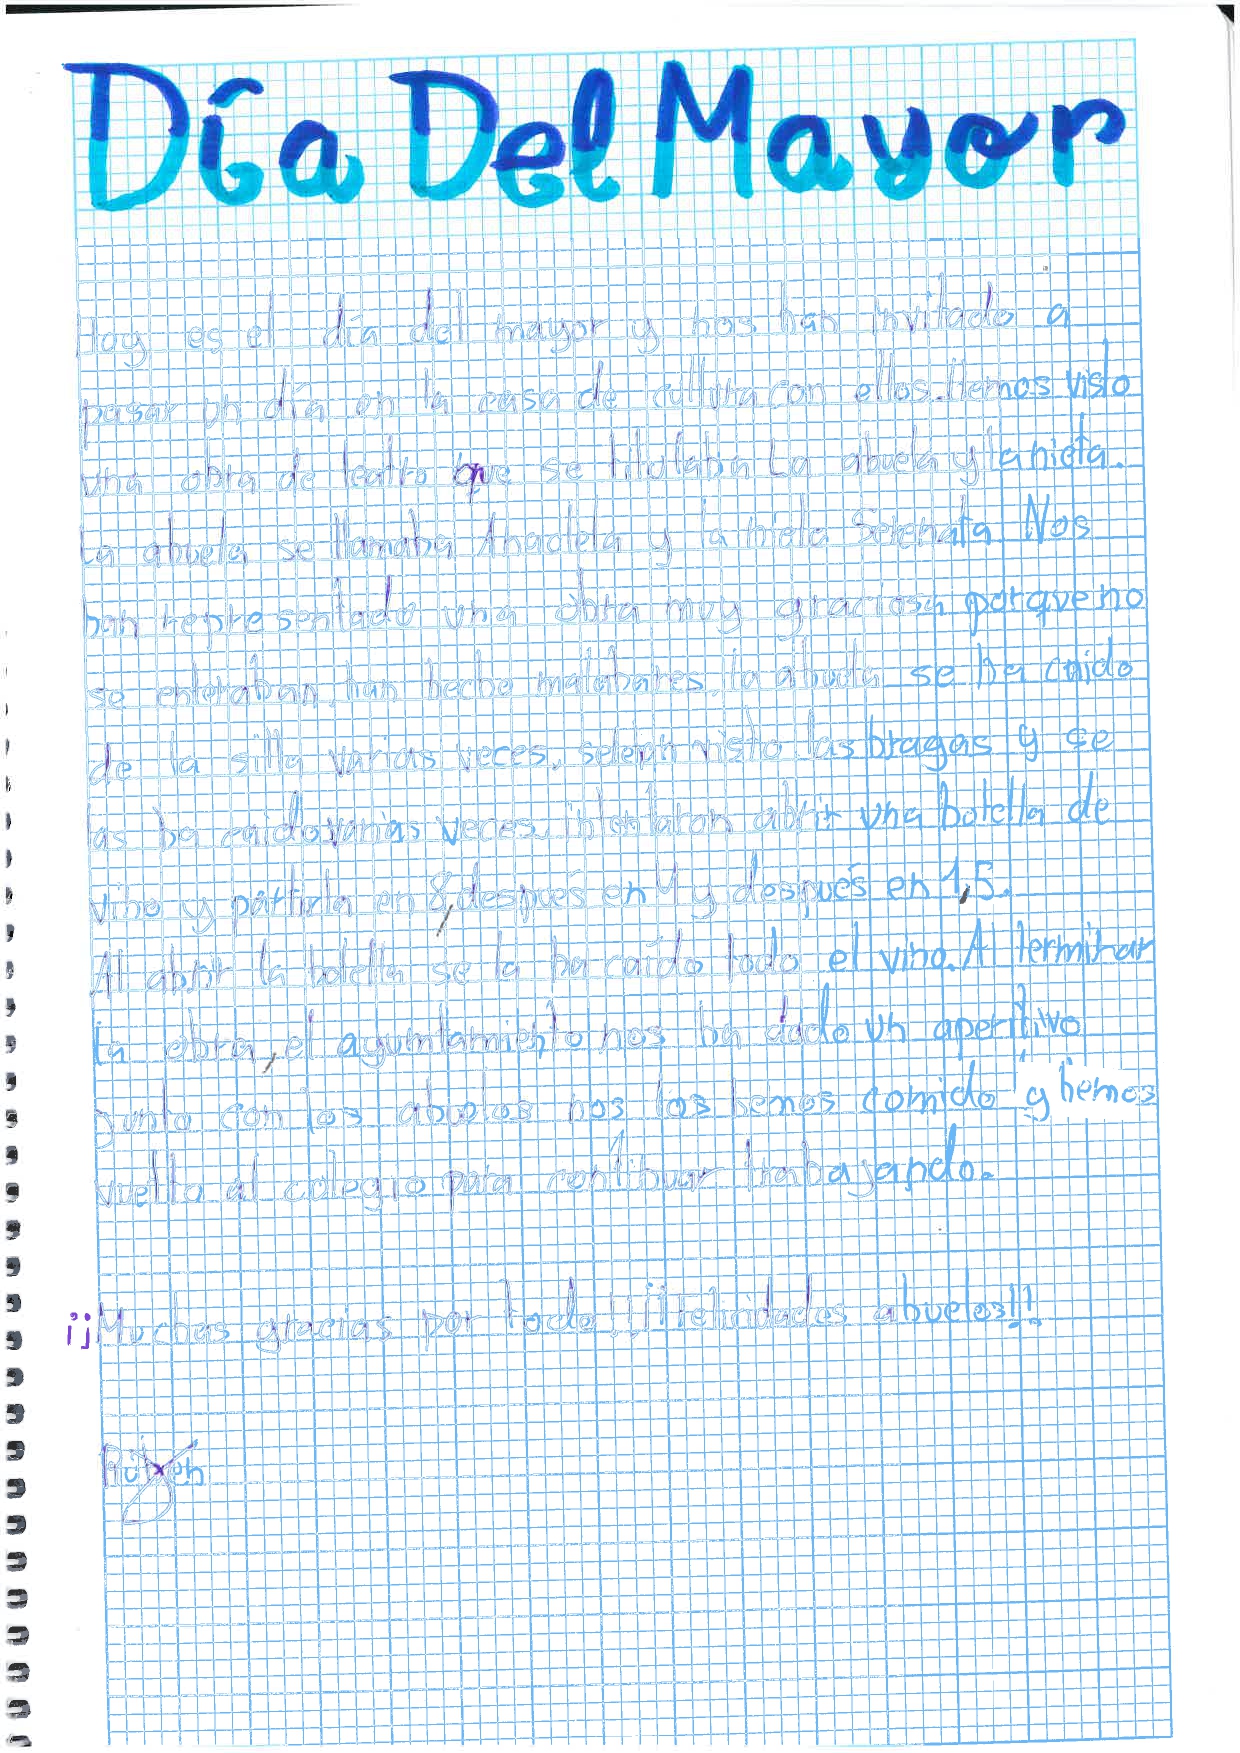 Día Del Mayor
Hoy es el día del mayor y nos han invitado a
pasar un día en la casa de cultura con ellos. Hemos visto
una obra de teatro que se titulaba La abuela y la nieta.
La abuela se llamaba Anacleta y la nieta Serenata. Nos
han representado una obra muy graciosa porque no
se enteraban, han hecho malabares, la abuela se ha caido
de la silla varias veces, visto las bragas y se
las ha caido varias veces, intentaron abrir una botella de
vino y partirla en 8, después en 4 y después en 1,5.
Al abrir la botella se la ha caído todo el vino. Al terminar
la obra, el ayuntamiento nos ha dado un aperitivo
junto con los abuelos nos los hemos comido y hemos
vuelto al colegio para continuar trabajando.
¡¡Muchas gracias por todo!! ¡¡Felicidades abuelos!!
Rubén